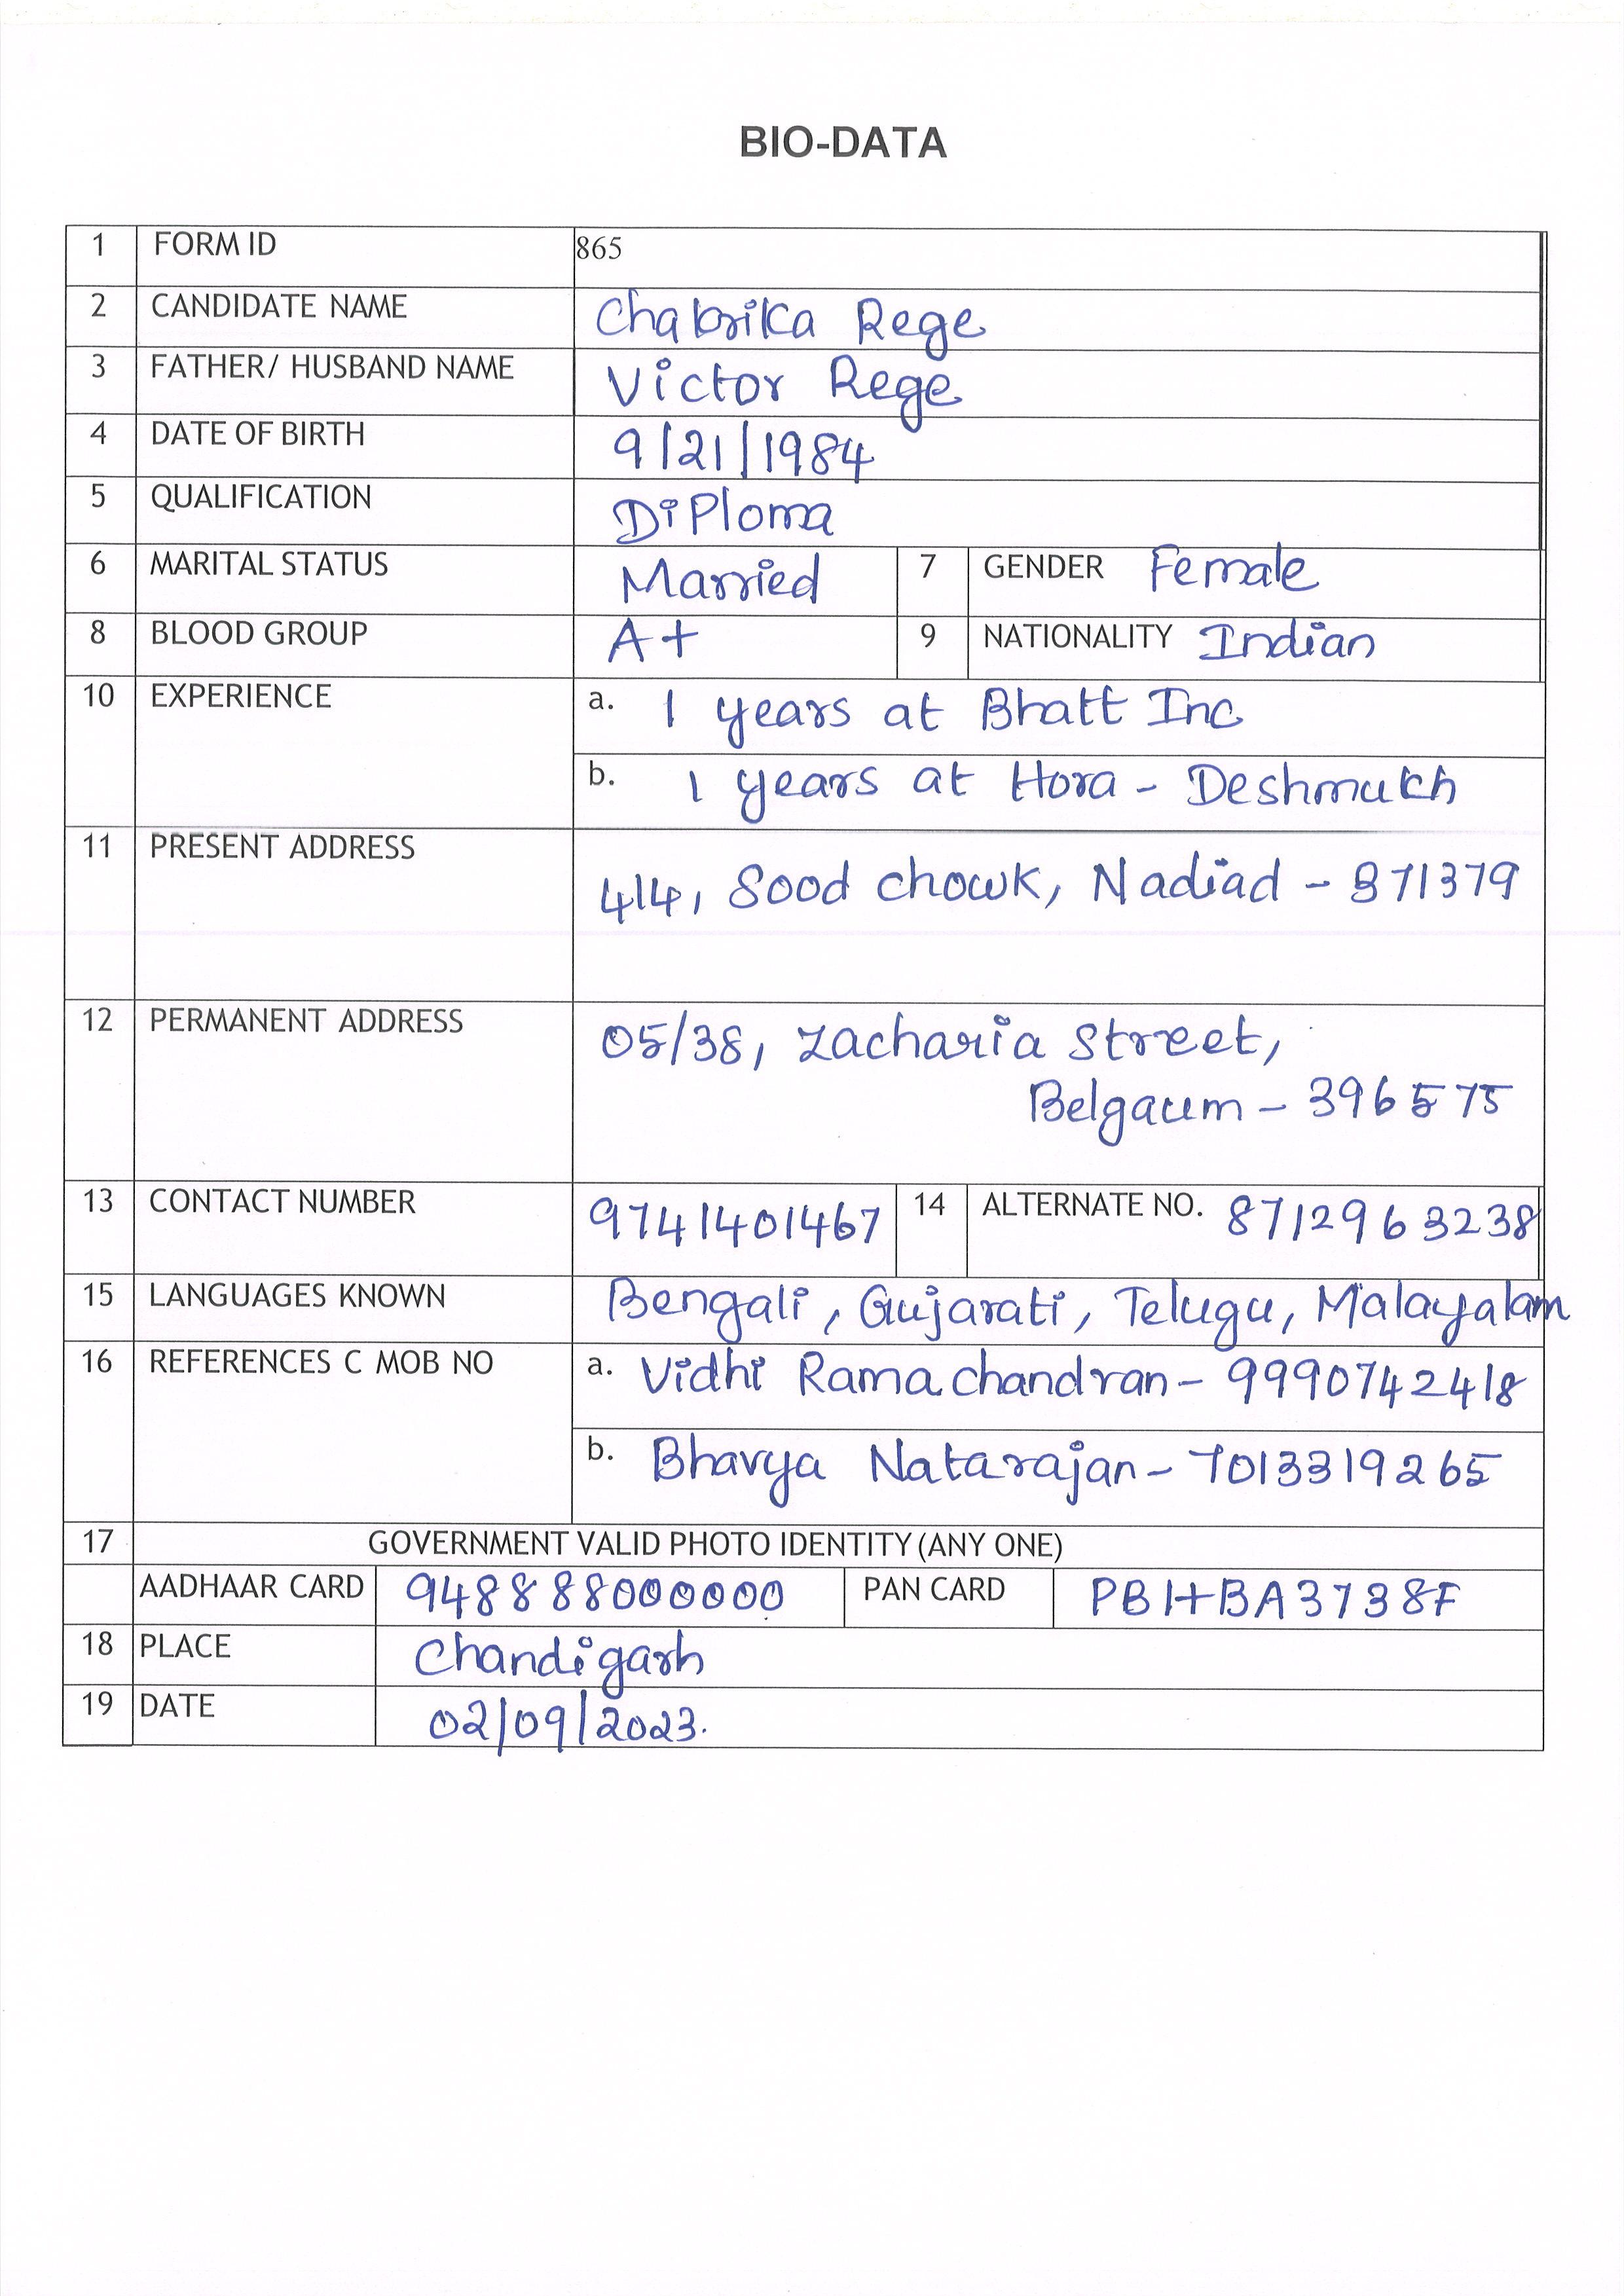 BIO-DATA
1 FORM ID 865
2 CANDIDATE NAME Chabrika Rege
3 FATHER/ HUSBAND NAME Victor Rege
4 DATE OF BIRTH 9/21/1984
5 QUALIFICATION DiPloma
6 MARITAL STATUS Married 7 GENDER Female
8 BLOOD GROUP A+ 9 NATIONALITY Indian
10 EXPERIENCE a. 1 years at Bhatt Inc
b. 1 years at Hora - Deshmukh
11 PRESENT ADDRESS
414, Sood chowk, Nadiad - 871379
12 PERMANENT ADDRESS 05/38, Zacharia Street,
Belgaum - 396575
13 CONTACT NUMBER 9741401467 14 ALTERNATE NO. 8712963238
15 LANGUAGES KNOWN Bengali, Gujarati, Telugu, Malayalam
16 REFERENCES C MOB NO a. Vidhi Ramachandran - 9990742418
b. Bhavya Natarajan - 7013319265
17 GOVERNMENT VALID PHOTO IDENTITY (ANY ONE)
AADHAAR CARD 948888000000 PAN CARD PBHBA3738F
18 PLACE Chandigarh
19 DATE 02/09/2023.